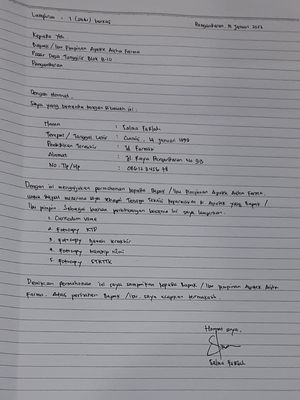 Lampiran : 1 (satu) berkas
Pangandaran, 2022
Kepada Yth
Bapak / Ibu Pimpinan Apotek Aisha Farma
Pasar Desa Blok B-10
Pangandaran
Dengan Hormat,
Saya yang bertanda tangan dibawah ini :
Nama : Salwa
Tempat / Tanggal Lahir : Ciamis, Januari
Pendidikan Terakhir : Farmasi
Alamat : Jl. Raya Pangandaran No
NO. Tlp/Hp :
Dengan ini mengajukan permohonan kepada Bapak / Ibu Pimpinan Apotek Aisha Farma,
Untuk dapat Tenaga Teknis di Apotek yang Bapak /
Ibu pimpin. Sebagai bahan pertimbangan bersama ini saya lampirkan :
1. Curriculum Vitae
2. Fotocopy KTP
3. Fotocopy Ijazah terakhir
4. Fotocopy transkrip nilai
5. Fotocopy STRTTK
Demikian permohonan ini saya sampaikan kepada Bapak / Ibu Pimpinan Apotek Aisha
Farma. Atas perhatian Bapak / Ibu, saya ucapkan terimakasih
Hormat saya,
Salwa